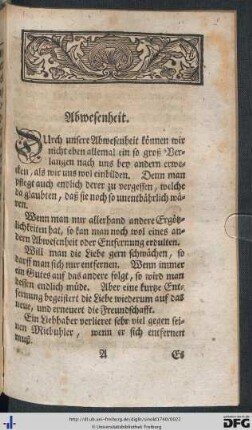 Abwesenheit.
DUrch unsere Abwesenheit können wir
nicht eben allemal ein so groß Ver-
langen nach uns bey andern erwe-
cken, als wir uns wol einbilden. Denn man
pflegt auch endlich derer zu vergessen, welche
da glaubten, daß sie noch so unentbährlich wä-
ren.
Wenn man nur allerhand andere Ergötz-
lichkeiten hat, so kan man noch wol eines an-
dern Abwesenheit oder Entfernung erdulten.
Will man die Liebe gern schwächen, so
darff man sich nur entfernen. Wenn immer
ein Gutes auf das andere folgt, so wird man
dessen endlich müde. Aber eine kurtze Ent-
fernung begeistert die Liebe wiederum auf das
neue, und erneuert die Freundschafft.
Ein Liebhaber verlieret sehr viel gegen sei-
nen Mitbuhler, wenn er sich entfernen
muß.
A Es
http://dl.ub.uni-freiburg.de/diglit/
© Universitätsbibliothek Freiburg
gefördert durch
DFG